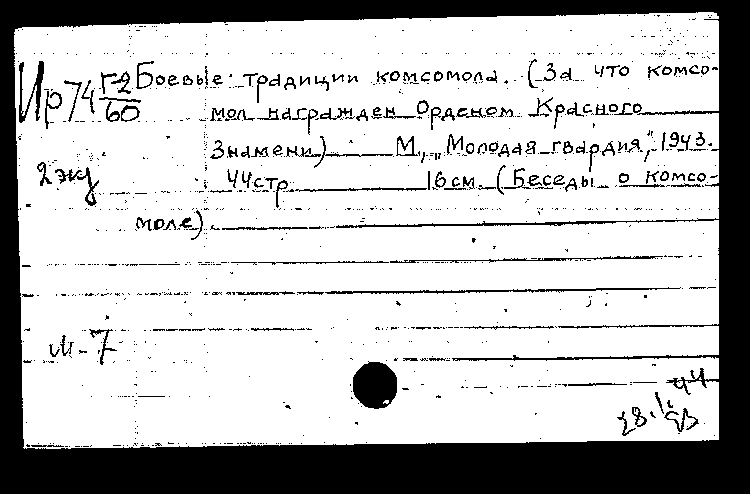 Ир74 Г-2/60 Боевые традиции комсомола. (За что комсо-
мол награжден Орденом Красного
Знамени) М., „Молодая гвардия," 1943.
2 экз
44стр 16см. (Беседы о комсо-
моле).
М-7
28.I.44